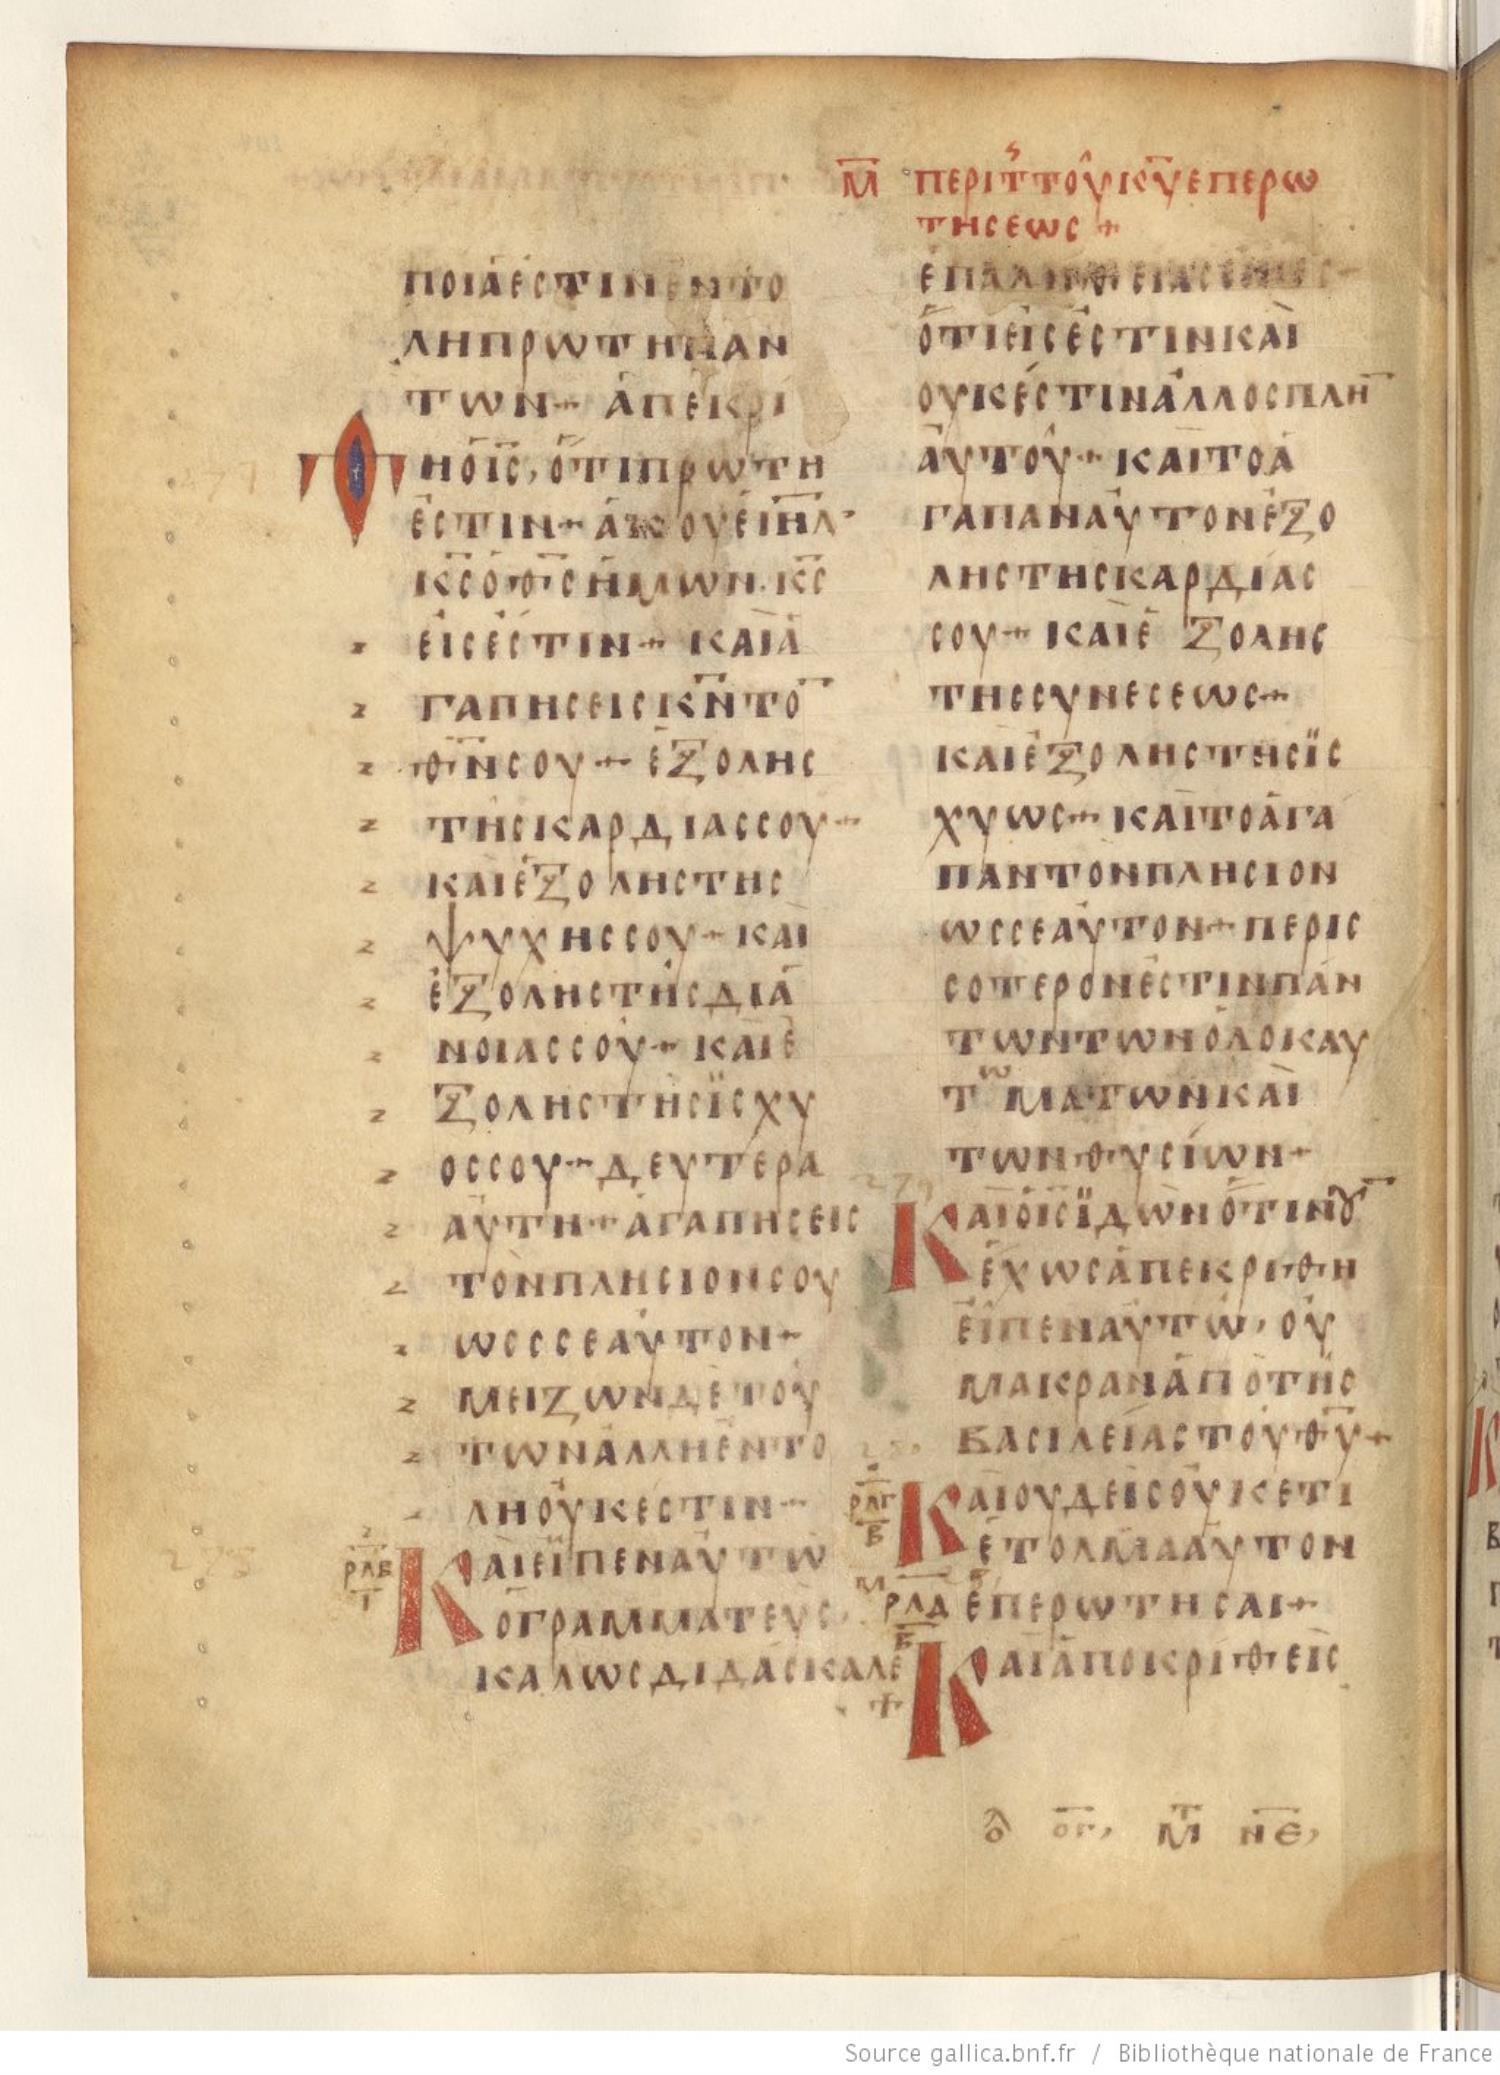 Μ ΠΕΡΙ ΤΗϹ ΤΟΥ ΚΥ ΕΠΕΡΩ
ΤΗϹΕΩϹ +
ΠΟΙΑ ΕϹΤΙΝ ΕΝΤΟ
ΛΗ ΠΡΩΤΗ ΠΑΝ
ΤΩΝ + ΑΠΕΚΡΙ
ΘΗ Ο ΙϹ, ΟΤΙ ΠΡΩΤΗ
ΕϹΤΙΝ + ΑΚΟΥΕ ΙΗΛ
ΚϹ Ο ΘϹ ΗΜΩΝ · ΚϹ
ΕΙϹ ΕϹΤΙΝ + ΚΑΙ Α
ΓΑΠΗϹΕΙϹ ΚΝ ΤΟ̅
ΘΝ ϹΟΥ + ΕΞ ΟΛΗϹ
ΤΗϹ ΚΑΡΔΙΑϹ ϹΟΥ +
ΚΑΙ ΕΞ ΟΛΗϹ ΤΗϹ
ΨΥΧΗϹ ϹΟΥ + ΚΑΙ
ΕΞ ΟΛΗϹ ΤΗϹ ΔΙΑ
ΝΟΙΑϹ ϹΟΥ + ΚΑΙ Ε
Ξ ΟΛΗϹ ΤΗϹ ΙϹΧΥ
ΟϹ ϹΟΥ + ΔΕΥΤΕΡΑ
ΑΥΤΗ + ΑΓΑΠΗϹΕΙϹ
ΤΟΝ ΠΛΗϹΙΟΝ ϹΟΥ
ΩϹ ϹΕΑΥΤΟΝ +
ΜΕΙΖΩΝ ΔΕ ΤΟΥ
ΤΩΝ ΑΛΛΗ ΕΝΤΟ
ΛΗ ΟΥΚ ΕϹΤΙΝ +
ΡΛΒ
Γ
ΚΑΙ ΕΙΠΕΝ ΑΥΤΩ
Ο ΓΡΑΜΜΑΤΕΥϹ
ΚΑΛΩϹ ΔΙΔΑϹΚΑΛΕ
ΕΠ ΑΛΗΘΕΙΑϹ
ΟΤΙ ΕΙϹ ΕϹΤΙΝ ΚΑΙ
ΟΥΚ ΕϹΤΙΝ ΑΛΛΟϹ ΠΛΗ̅
ΑΥΤΟΥ + ΚΑΙ ΤΟ Α
ΓΑΠΑΝ ΑΥΤΟΝ ΕΞ Ο
ΛΗϹ ΤΗϹ ΚΑΡΔΙΑϹ
ϹΟΥ + ΚΑΙ ΕΞ ΟΛΗϹ
ΤΗϹ ϹΥΝΕϹΕΩϹ +
ΚΑΙ ΕΞ ΟΛΗϹ ΤΗϹ ΙϹ
ΧΥΩϹ + ΚΑΙ ΤΟ ΑΓΑ
ΠΑΝ ΤΟΝ ΠΛΗϹΙΟΝ
ΩϹ ϹΕΑΥΤΟΝ + ΠΕΡΙϹ
ϹΟΤΕΡΟΝ ΕϹΤΙΝ ΠΑΝ
ΤΩΝ ΤΩΝ ΟΛΟΚΑΥ
ΤΩΜΑΤΩΝ ΚΑΙ
ΤΩΝ ΘΥϹΙΩΝ +
ΚΑΙ Ο ΙϹ ΙΔΩΝ ΟΤΙ ΝΟΥ̅
ΕΧΩϹ ΑΠΕΚΡΙΘΗ
ΕΙΠΕΝ ΑΥΤΩ, ΟΥ
ΜΑΚΡΑΝ ΑΠΟ ΤΗϹ
ΒΑϹΙΛΕΙΑϹ ΤΟΥ ΘΥ +
ΡΛΓ
Β
ΚΑΙ ΟΥΔΕΙϹ ΟΥΚΕΤΙ
ΕΤΟΛΜΑ ΑΥΤΟΝ
Μ ΡΛΔ ΕΠΕΡΩΤΗϹΑΙ +
Β
ΚΑΙ ΑΠΟΚΡΙΘΕΙϹ
ΟΓ, Μ ΝΕ,
Source gallica.bnf.fr / Bibliothèque nationale de France